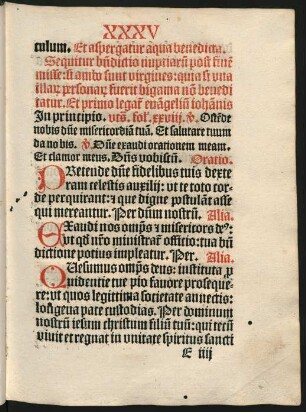 XXXV
culum. Et aspergatur aqua benedicta.
Sequitur bn̄dictio nuptiarū post finē
misse: si ambo sunt virgines: quia si vna
illarꝫ ꝑsonarꝫ fuerit bigama nō benedi
tatur. Et primo legat̄ euāgeliū iohānis
In principio. vts̄. fol. xxviij. ℣. Ostēde
nobis dn̄e misericordiā tuā. Et salutare tuum
da nobis. ℣. Dn̄e exaudi orationem meam.
Et clamor meus. Dn̄s vobiscū. Oratio.
PRetende dn̄e fidelibus tuis dexte
ram celestis auxilij: vt te toto cor
de perquirant: ⁊ que digne postulāt asse
qui mereantur. Per dn̄m nostrū. Alia.
EXaudi nos omp̄s ⁊ misericors de⁹:
vt qd̄ nr̄o ministrat̄ officio: tua bn̄
dictione potius impleatur. Per. Alia.
QVesumus omp̄s deus: instituta ꝓ
uidentie tue pio fauore proseque
re: vt quos legitima societate annectis:
lōgeua pace custodias. Per dominum
nostrū iesum christum filiū tuū: qui tecū
viuit et regnat in vnitate spiritus sancti
E iiij